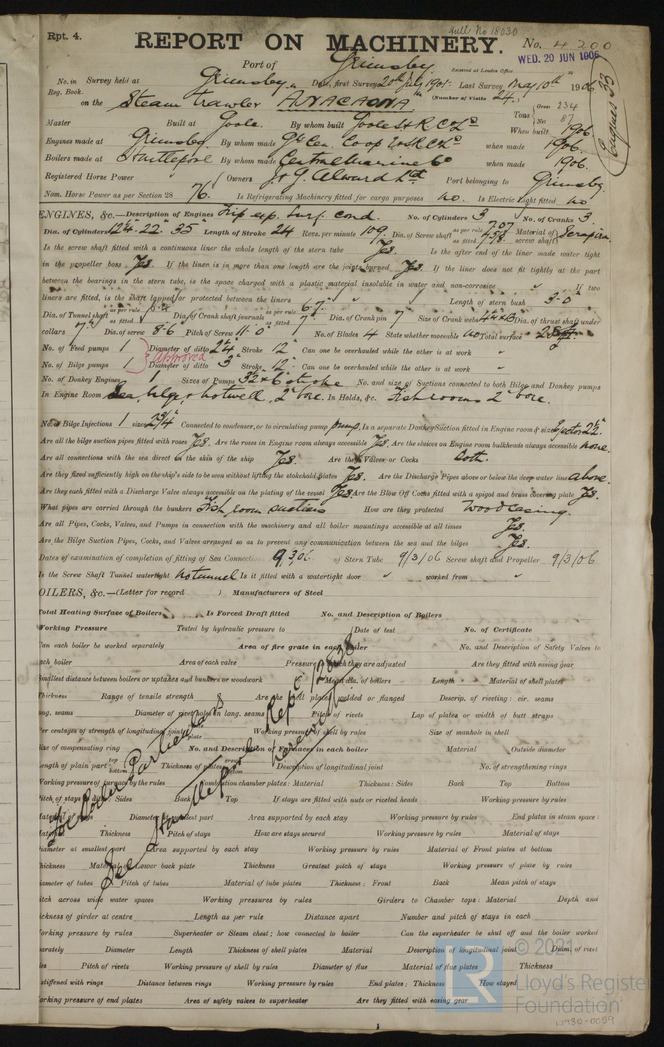 Hull No 18030
Rpt. 4.
REPORT ON MACHINERY.
No. 4200
Port of Grimsby
Received at London Office WED. 20 JUN 1906
No. in Survey held at Grimsby Date, first Survey 20th July 1905 Last Survey May 10th 1906
Reg. Book. (Number of Visits 24)
on the Steam Trawler "ANACAONA"
Tons Gross 234 Net 87
Master Built at Goole By whom built Goole S & R Co Ld When built 1906
Engines made at Grimsby By whom made Gt Cen. Coop when made 1906
Boilers made at Hartlepool By whom made Central Marine Co when made 1906
Registered Horse Power Owners J. G. Alward Ltd Port belonging to Grimsby
Nom. Horse Power as per Section 28 76 Is Refrigerating Machinery fitted for cargo purposes no. Is Electric Light fitted no
Engines 33
ENGINES, &c.—Description of Engines Trip exp. Surf. cond. No. of Cylinders 3 No. of Cranks 3
Dia. of Cylinders 12¾. 22. 35 Length of Stroke 24 Revs. per minute 109 Dia. of Screw shaft as per rule 7.07 as fitted Material of screw shaft
Is the screw shaft fitted with a continuous liner the whole length of the stern tube Yes. Is the after end of the liner made water tight
in the propeller boss Yes If the liner is in more than one length are the joints burned Yes If the liner does not fit tightly at the part
between the bearings in the stern tube, is the space charged with a plastic material insoluble in water and non-corrosive " If two
liners are fitted, is the shaft lapped or protected between the liners " Length of stern bush 3-0"
Dia. of Tunnel shaft as per rule as fitted Dia. of Crank shaft journals as per rule 6.7" as fitted 7" Dia. of Crank pin 7 Size of Crank webs Dia. of thrust shaft under
collars 7" Dia. of screw 8-6 Pitch of Screw 11-0" No. of Blades 4 State whether moveable no Total surface
No. of Feed pumps 1 Diameter of ditto 2¾ Stroke 12" Can one be overhauled while the other is at work "
Approved
No. of Bilge pumps 1 Diameter of ditto 3" Stroke 12" Can one be overhauled while the other is at work "
No. of Donkey Engines 1 Sizes of Pumps 3½ × 6" stroke No. and size of Suctions connected to both Bilge and Donkey pumps
In Engine Room Sea, bilge & hotwell, 2" bore. In Holds, &c. Fish rooms 2" bore.
No. of Bilge Injections 1 sizes 2¾" Connected to condenser, or to circulating pump pump. Is a separate Donkey Suction fitted in Engine room & size Ejector 2½"
Are all the bilge suction pipes fitted with roses Yes. Are the roses in Engine room always accessible Yes. Are the sluices on Engine room bulkheads always accessible none.
Are all connections with the sea direct on the skin of the ship Yes. Are they Valves or Cocks both.
Are they fixed sufficiently high on the ship's side to be seen without lifting the stokehold plates Yes. Are the Discharge Pipes above or below the deep water line above.
Are they each fitted with a Discharge Valve always accessible on the plating of the vessel Yes. Are the Blow Off Cocks fitted with a spigot and brass covering plate Yes.
What pipes are carried through the bunkers Fish room suctions How are they protected Wood casing.
Are all Pipes, Cocks, Valves, and Pumps in connection with the machinery and all boiler mountings accessible at all times Yes.
Are the Bilge Suction Pipes, Cocks, and Valves arranged so as to prevent any communication between the sea and the bilges Yes.
Dates of examination of completion of fitting of Sea Connections 9/3/06 of Stern Tube 9/3/06 Screw shaft and Propeller 9/3/06
Is the Screw Shaft Tunnel watertight no tunnel Is it fitted with a watertight door " worked from "
OILERS, &c.—(Letter for record ) Manufacturers of Steel
Total Heating Surface of Boilers Is Forced Draft fitted No. and Description of Boilers
Working Pressure Tested by hydraulic pressure to Date of test No. of Certificate
Can each boiler be worked separately Area of fire grate in each boiler No. and Description of Safety Valves to
each boiler Area of each valve Pressure to which they are adjusted Are they fitted with easing gear
Smallest distance between boilers or uptakes and bunkers or woodwork Mean dia. of boilers Length Material of shell plates
Thickness Range of tensile strength Are the shell plates welded or flanged Descrip. of riveting: cir. seams
long. seams Diameter of rivet holes in long. seams Pitch of rivets Lap of plates or width of butt straps
Per centages of strength of longitudinal joint plate Working pressure of shell by rules Size of manhole in shell
Size of compensating ring No. and Description of Furnaces in each boiler Material Outside diameter
Length of plain part top bottom Thickness of plates crown bottom Description of longitudinal joint No. of strengthening rings
Working pressure of furnace by the rules Combustion chamber plates: Material Thickness: Sides Back Top Bottom
Pitch of stays to ditto: Sides Back Top If stays are fitted with nuts or riveted heads Working pressure by rules
Material of stays Diameter at smallest part Area supported by each stay Working pressure by rules End plates in steam space:
Material Thickness Pitch of stays How are stays secured Working pressure by rules Material of stays
Diameter at smallest part Area supported by each stay Working pressure by rules Material of Front plates at bottom
Thickness Material of Lower back plate Thickness Greatest pitch of stays Working pressure of plate by rules
Diameter of tubes Pitch of tubes Material of tube plates Thickness: Front Back Mean pitch of stays
Pitch across wide water spaces Working pressures by rules Girders to Chamber tops: Material Depth and
thickness of girder at centre Length as per rule Distance apart Number and pitch of stays in each
Working pressure by rules Superheater or Steam chest; how connected to boiler Can the superheater be shut off and the boiler worked
separately Diameter Length Thickness of shell plates Material Description of longitudinal joint Diam. of rivet
holes Pitch of rivets Working pressure of shell by rules Diameter of flue Material of flue plates Thickness
If stiffened with rings Distance between rings Working pressure by rules End plates: Thickness How stayed
Working pressure of end plates Area of safety valves to superheater Are they fitted with easing gear
For Boiler Particulars
See Hartlepool Rept 12838
herewith
© 2021
Lloyd's Register
Foundation
W980-0029